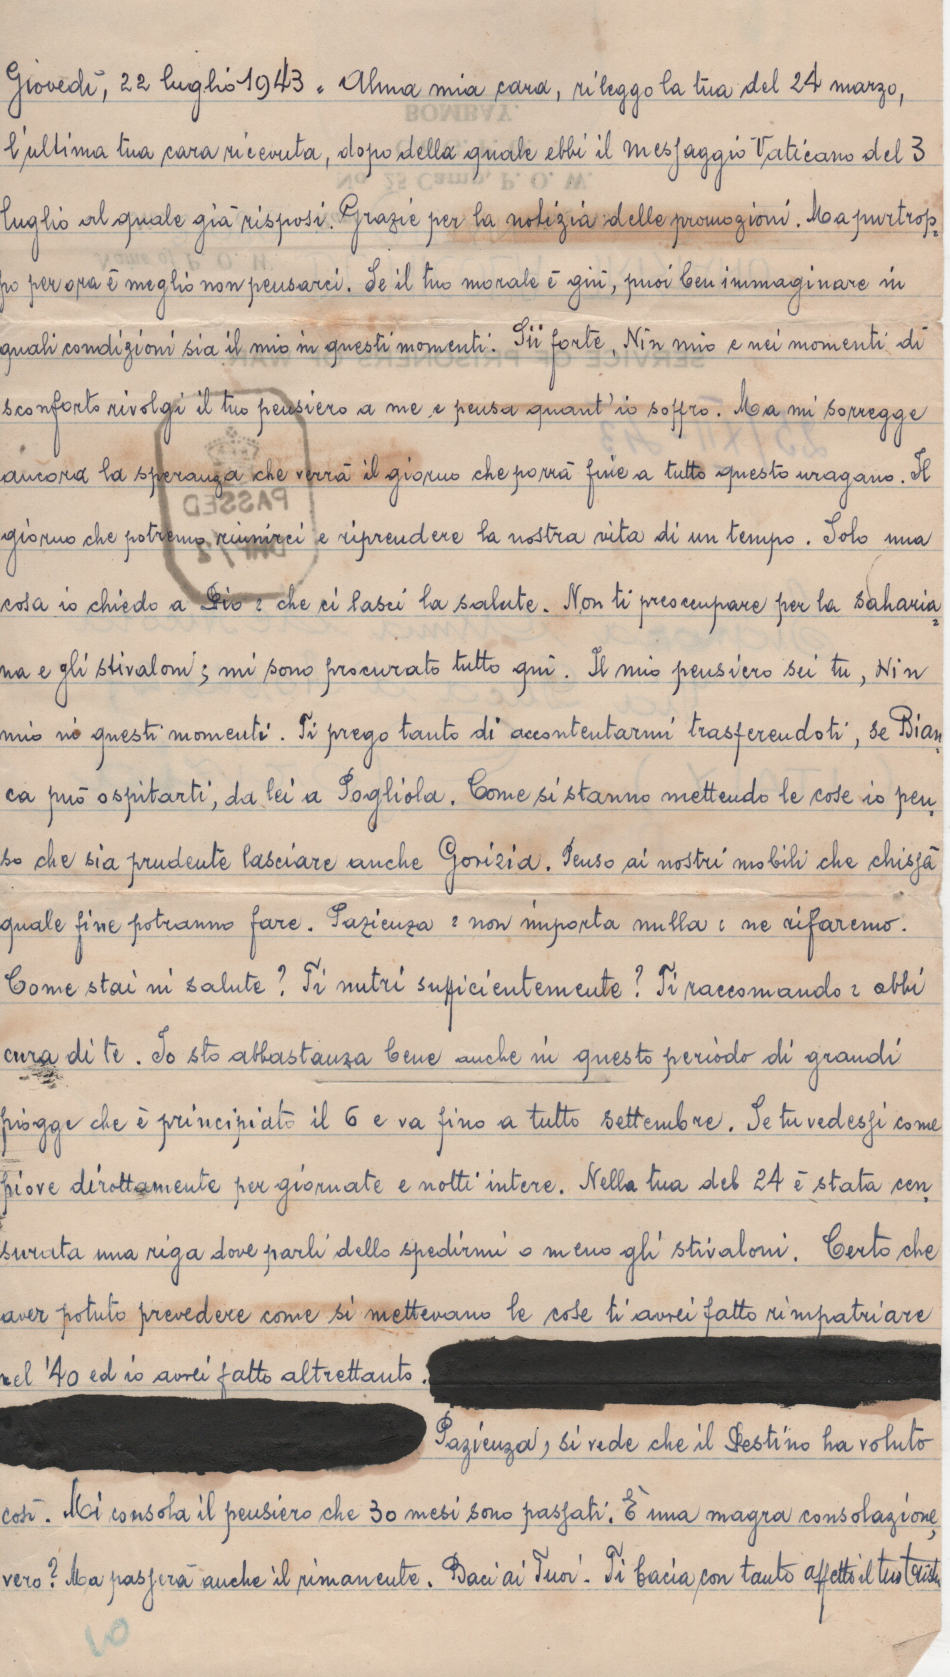 Giovedì, 22 luglio 1943. Alma mia cara, rileggo la tua del 24 marzo,
l'ultima tua cara ricevuta, dopo della quale ebbi il messaggio Vaticano del 3
luglio al quale già risposi. Grazie per la notizia delle promozioni. Ma purtrop=
po per ora è meglio non pensarci. Se il tuo morale è giù, puoi ben immaginare in
quali condizioni sia il mio in questi momenti. Sii forte, Nin mio e nei momenti di
sconforto rivolgi il tuo pensiero a me e pensa quant'io soffro. Ma mi sorregge
ancora la speranza che verrà il giorno che porrà fine a tutto questo uragano. Il
giorno che potremo riunirci e riprendere la nostra vita di un tempo. Solo una
cosa io chiedo a Dio: che ci lasci la salute. Non ti preoccupare per la saharia=
na e gli stivaloni; mi sono procurato tutto qui. Il mio pensiero sei tu, Nin
mio in questi momenti. Ti prego tanto di accontentarmi trasferendoti, se Bian=
ca può ospitarti, da lei a Pogliola. Come si stanno mettendo le cose io pen=
so che sia prudente lasciare anche Gorizia. Penso ai nostri mobili che chissà
quale fine potranno fare. Pazienza: non importa nulla: ne rifaremo.
Come stai in salute? Ti nutri sufficientemente? Ti raccomando: abbi
cura di te. Io sto abbastanza bene anche in questo periodo di grandi
piogge che è principiato il 6 e va fino a tutto settembre. Se tu vedessi come
piove dirottamente per giornate e notti intere. Nella tua del 24 è stata cen=
surata una riga dove parli dello spedirmi o meno gli stivaloni. Certo che
aver potuto prevedere come si mettevano le cose ti avrei fatto rimpatriare
nel '40 ed io avrei fatto altrettanto.
Pazienza, si vede che il Destino ha voluto
così. Mi consola il pensiero che 30 mesi sono passati. È una magra consolazione,
vero? Ma passerà anche il rimanente. Baci ai Tuoi. Ti bacia con tanto affetto il tuo
PASSED
DHP/2
BOMBAY.
No. 25 Camp, P. O. W.
Name of P. O. W.
SERVICE OF PRISONERS OF WAR